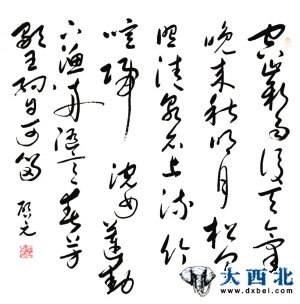 空山新雨後天氣
晚来秋明月松间
照清泉石上流竹
喧歸浣女蓮動
下漁舟随意春芳
歇王孫自可留
大西北
www.dxbei.com